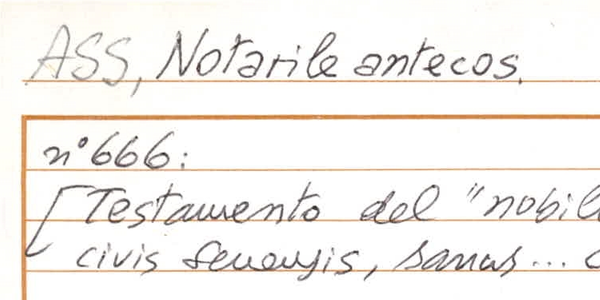 ASS, Notarile antecos.
n° 666:
[Testamento del "nobil
civis senensis, sanus... c